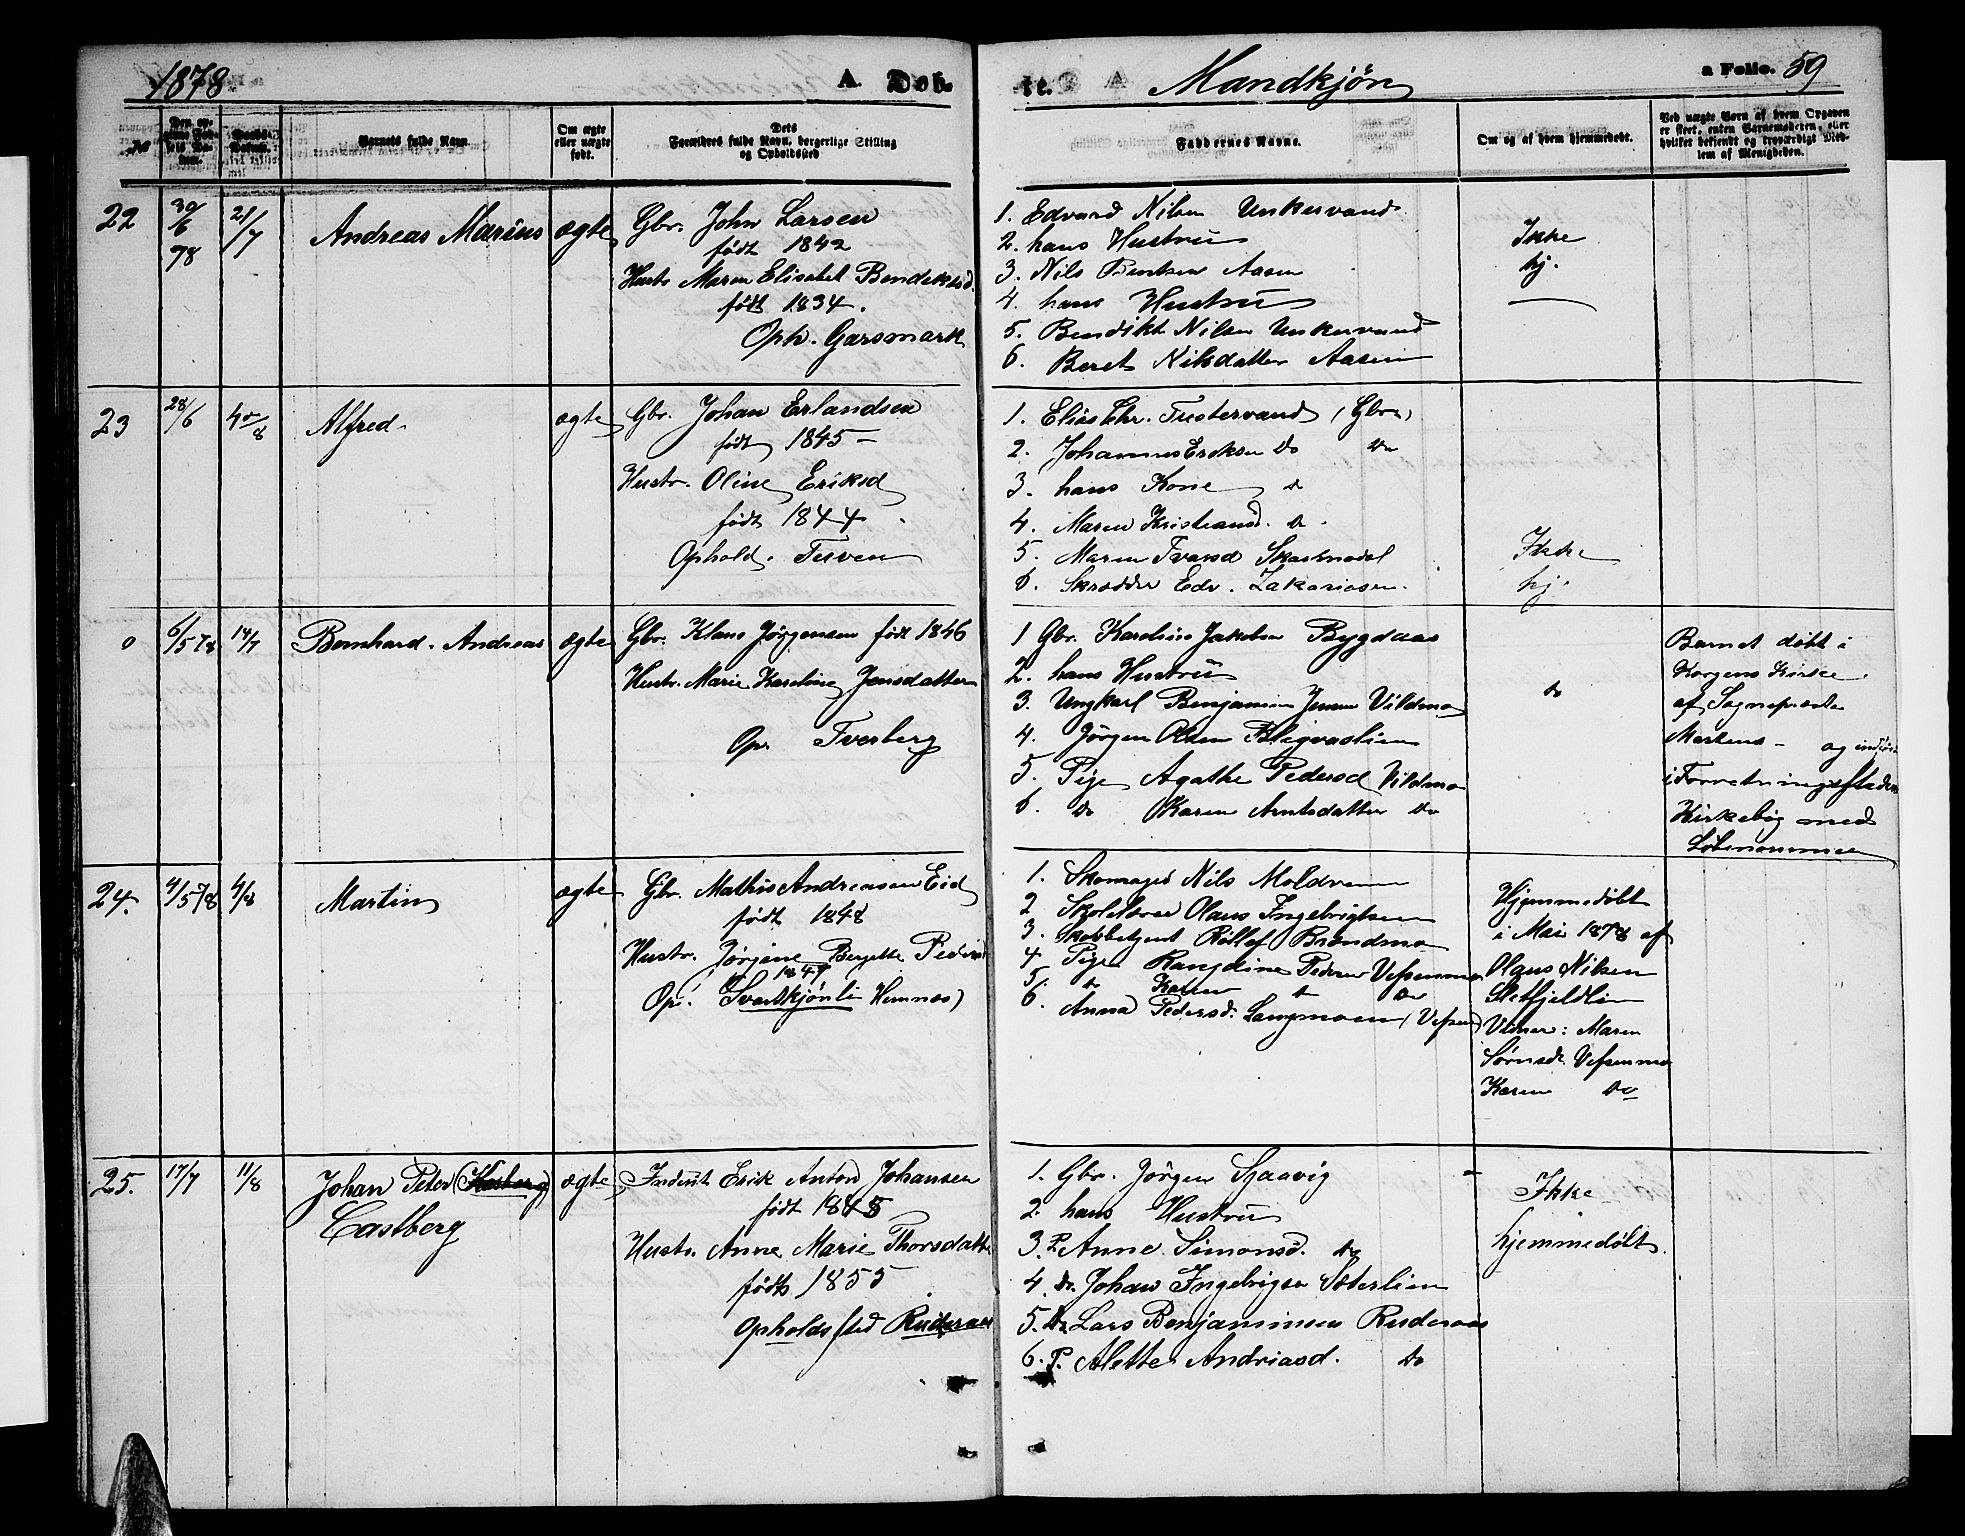 1878
A. Døb-
te.
Mandkjøn
a Folio. 59
№
Barnets fulde Navn.
Om ægte
eller uægte
født.
Dets
Forældres fulde Navn, borgerlige Stilling
og Opholdssted
Faddernes Navne.
Om og af hvem hjemmedøbt.
Ved uægte Børn af hvem Opgaven
er skeet, enten Barnemoderen, eller
hvilket bekjendt og troværdigt Med-
lem af Menigheden.
22
30/6 78
21/7
Andreas Marius
ægte
Gbr. John Larsen
født 1842
Hustr. Maren Elisabet Bendiksd.
født 1834.
Oph. Garsmark
1. Edvard Nilsen Unkervand
2. hans Hustru
3. Nils Bentsen Aasen
4. hans Hustru
5. Bendikt Nilsen Unkervand
6. Beret Nilsdatter Aasen
Ikke
hj.
23
28/6
4/8
Alfred
ægte
Gbr. Johan Erlandsen
født 1845 –
Hustr. Oline Eriksd
født 1844
Ophold. Tusven
1. Elias Chr. Tustervand (Gbr)
2. Johannes Eriksen Do Do
3. hans Kone do
4. Maren Kristiansd. do
5. Maren Ivarsd
6. Skrædder Edv. Zakariasen.
Ikke
hj.
0
6/5 78
14/7
Bernhard Andreas
ægte
Gbr. Klaus Jørgensen født 1846
Hustr. Marie Karoline Jensdatter
Op. Tverberg
1 Gbr. Karelius Jakobsen Bygdaas
2. hans Hustru
3. Ungkarl Benjamin Jensen Vildmo
4. Jørgen Olsen
5. Pige Agathe Pedersd Vildmo
6. Do Karen Arntsdatter Do
do
Barnet døbt i
Korgens Kirke
af Sognepræst
Martens – og indført
i Forretningsstedets
Kirkebog med
Løbenummer
24.
4/5 78
4/8
Martin
ægte
Gbr. Mathis Andreasen Eid
født 1848
Hustr. Jørgine Bergitte Pedersd
1847
Op. Svartskjønli Hemnæs)
1. Skomager Nils Moldrem
2 Skolelærer Olaus Ingebrigtsen
3. Skovbetjent Rollef Brandmo
4 Pige Rangdine Pedersd Vefsenmo
5. do Karen do do
6. Anna Pedersd. Langmoen (Vefsen)
Hjemmedøbt
i Mai 1878 af
Olaus Nilsen
Sletfjeldlien
Vidner: Maren
Sørensd. Vefsenmo
Karen Do
25.
17/7
11/8
Johan Peter
Castberg
ægte
Inderst Erik Anton Johansen
født 1848
Hustr. Anne Marie Thorsdatter
født 1855
Opholdssted Rudsenaas
1. Gbr. Jörgen Sjaavig
2. hans Hustru
3. P. Anne Simonsd. Do
4. Do Johan Ingebrigtsen Sæterlien
5. Do Lars Benjaminsen Ruderaas
6. P. Alette Andreasd. Do
Ikke
hjemmedøbt.